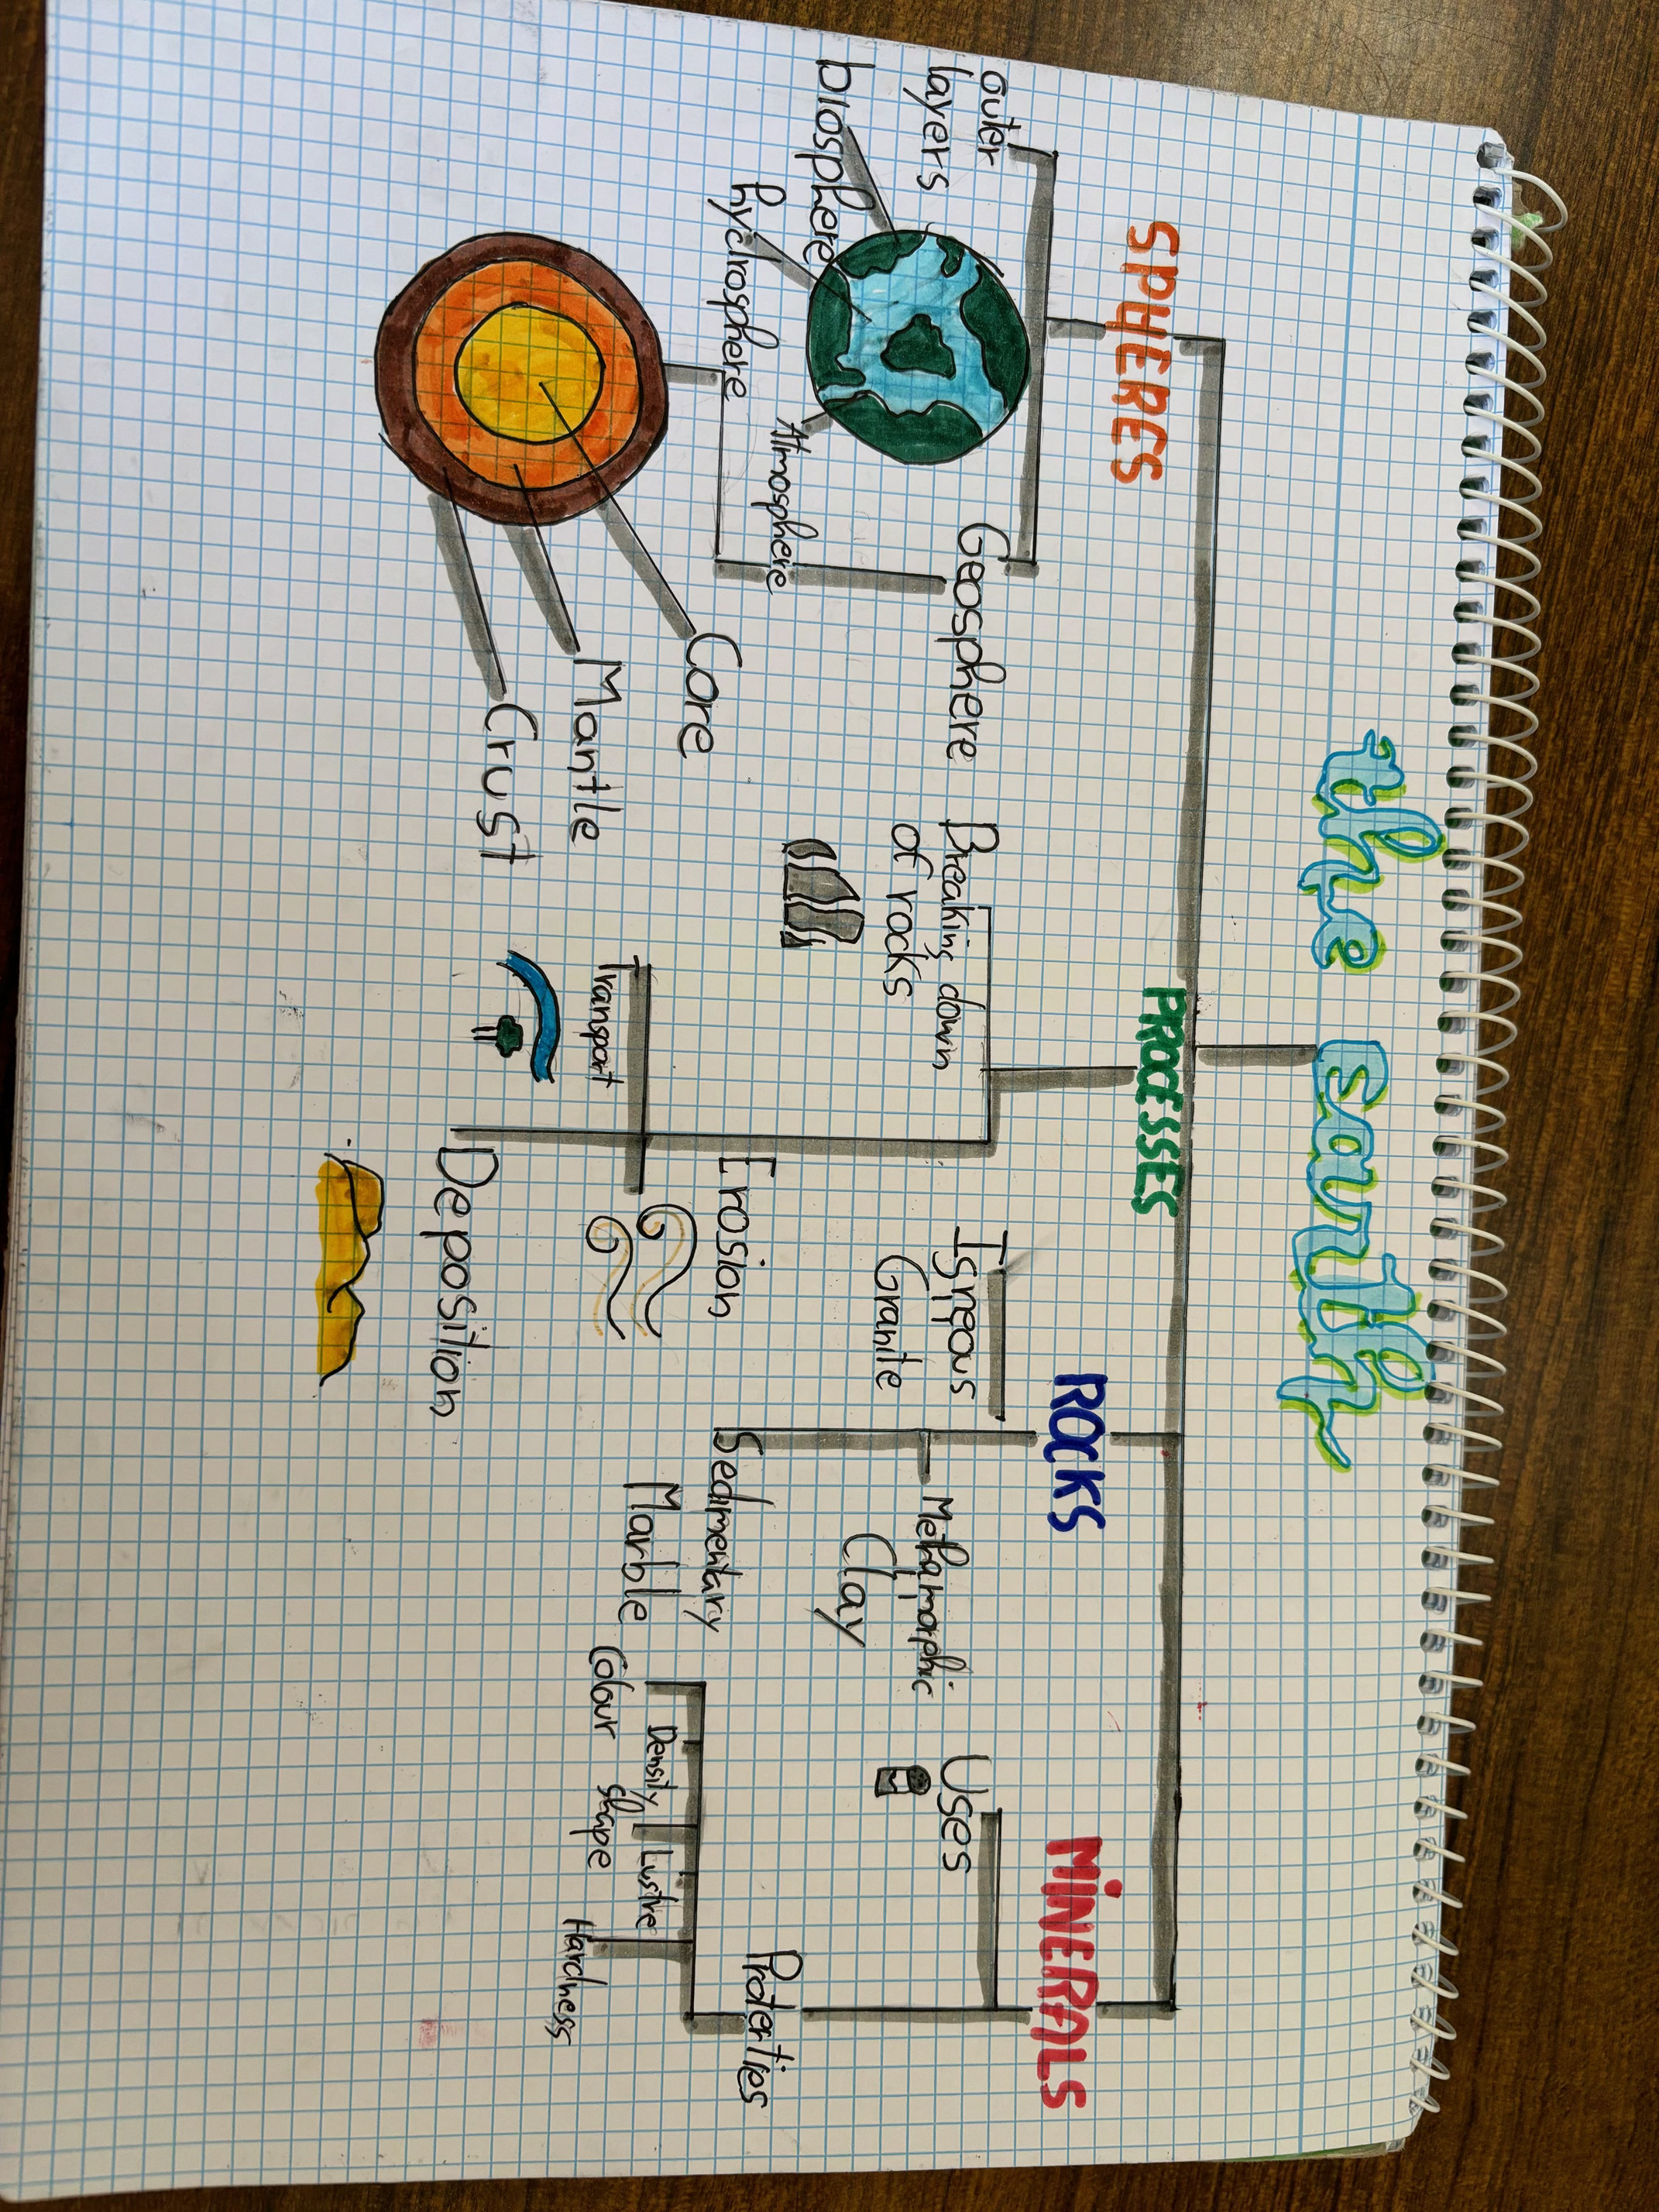 the earth
SPHERES
outer
layers
biosphere
hydrosphere
Atmosphere
Geosphere
Core
Mantle
Crust
PROCESSES
Breaking down
of rocks
Erosion
Transport
Deposition
ROCKS
Igneous
Granite
Methamorphic
Clay
Sedimentary
Marble
MINERALS
Uses
Proterties
Colour
Density
shape
Lustre
Hardness